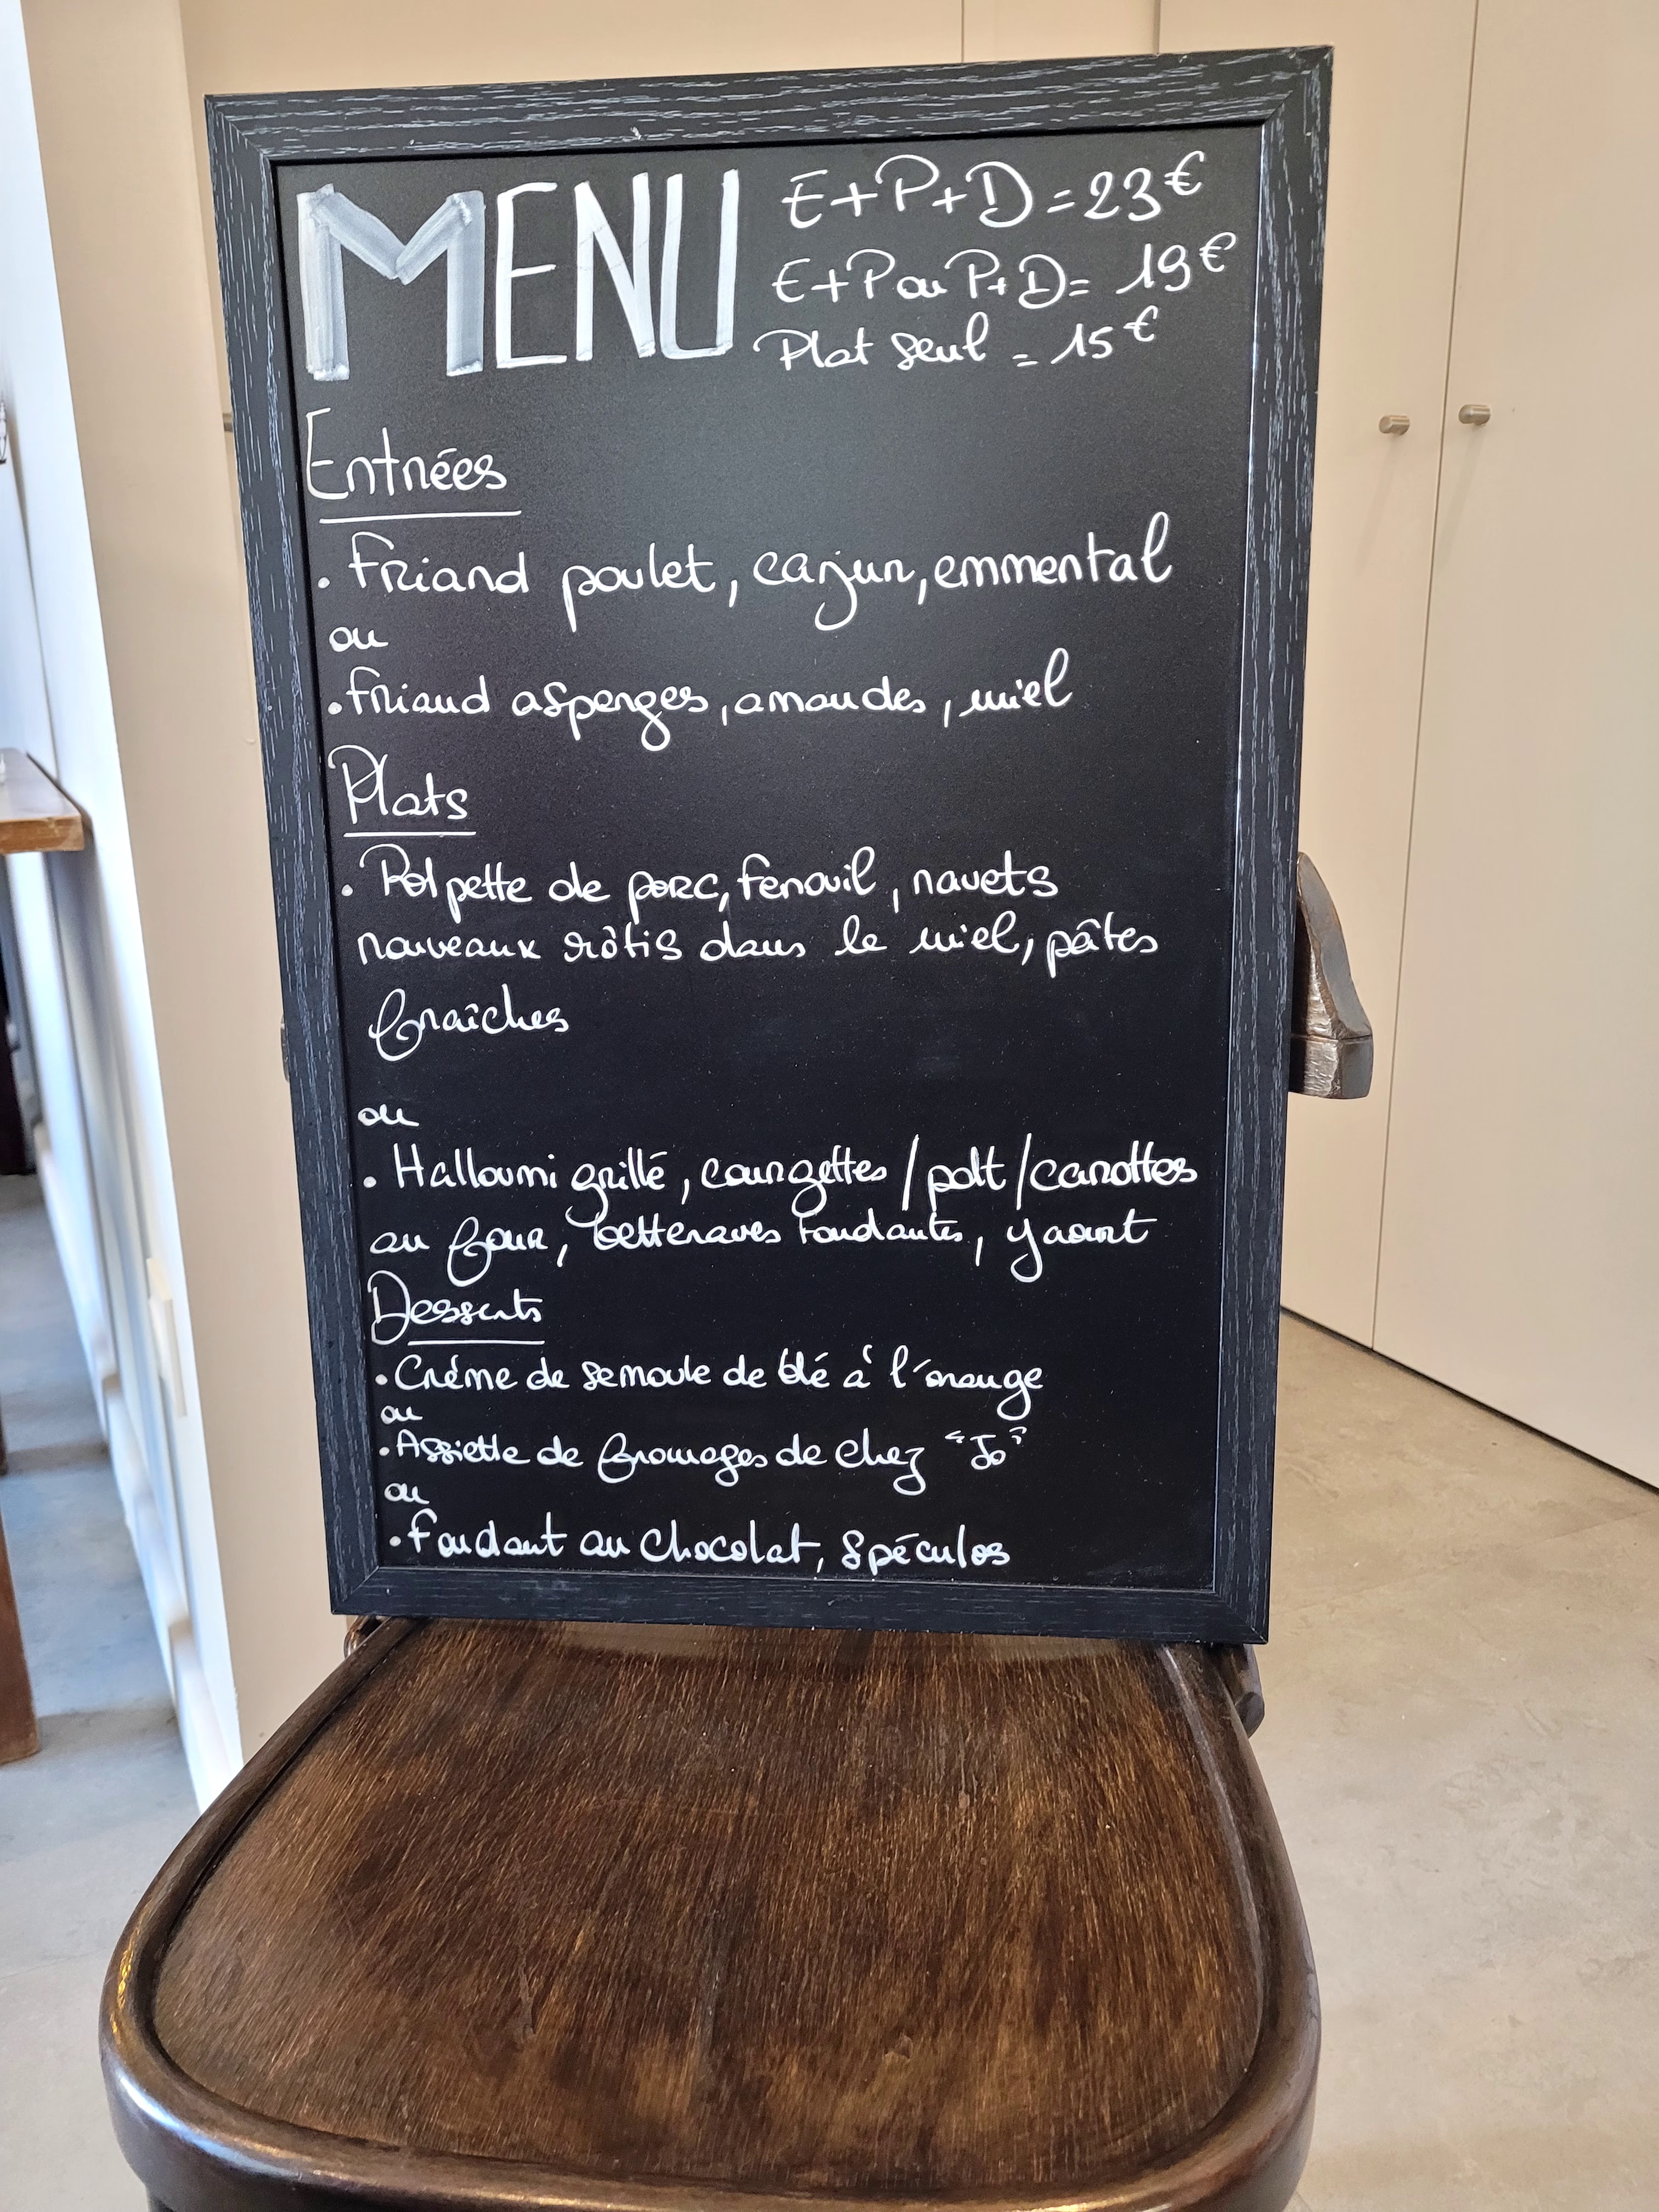 MENU
E+P+D = 23€
E+P ou P+D = 19€
Plat seul = 15€
Entrées
. Friand poulet, cajun, emmental
ou
. Friand asperges, amandes, miel
Plats
. Polpette de porc, fenouil, navets
nouveaux rôtis dans le miel, pâtes
fraîches
ou
. Halloumi grillé, courgettes / pdt / carottes
au four, betteraves fondantes, yaourt
Desserts
. Crème de semoule de blé à l'orange
ou
. Assiette de fromages de chez "Jo"
ou
. Fondant au chocolat, spéculos